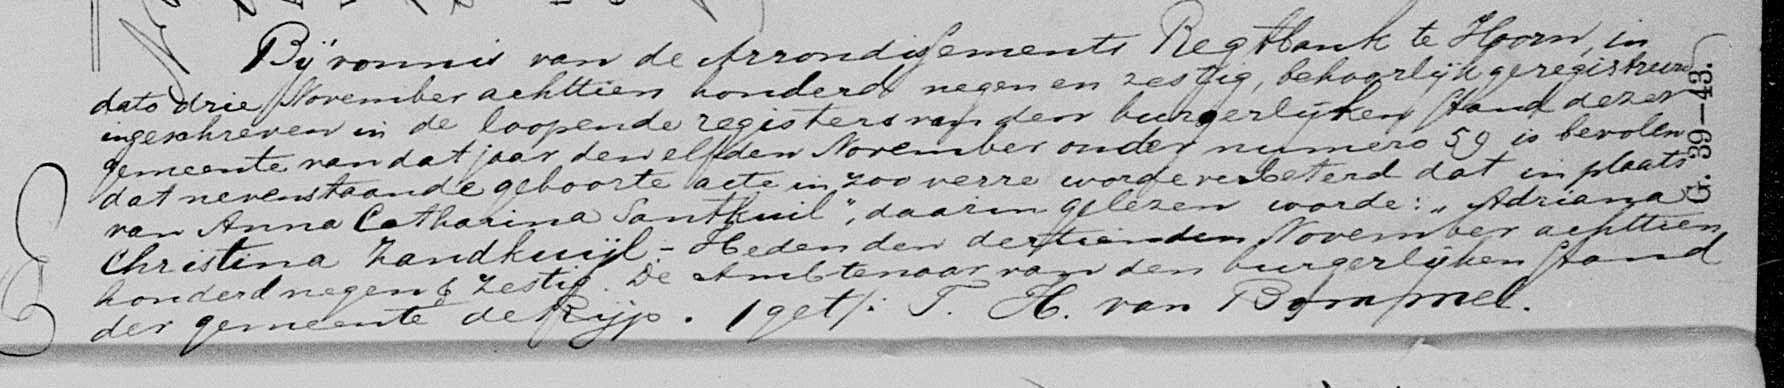 Bij vonnis van de Arrondissements Regtbank te Hoorn, in
dato drie November achttien honderd negen en zestig, behoorlijk geregistreerd
ingeschreven in de loopende registers van den burgerlijken stand dezer
gemeente van dat jaar den elfden November onder numero 59 is bevolen
dat nevenstaande geboorte acte in zoo verre worde verbeterd dat in plaats
van Anna Catharina Santkuil", daarin gelezen worde: "Adriana
Christina Zandkuijl. - Heden den dertienden November achttien
honderd negen & zestig. De Ambtenaar van den burgerlijken Stand
der gemeente de Rijp. /get/: T. H. van Bommel.
G. 39-43.